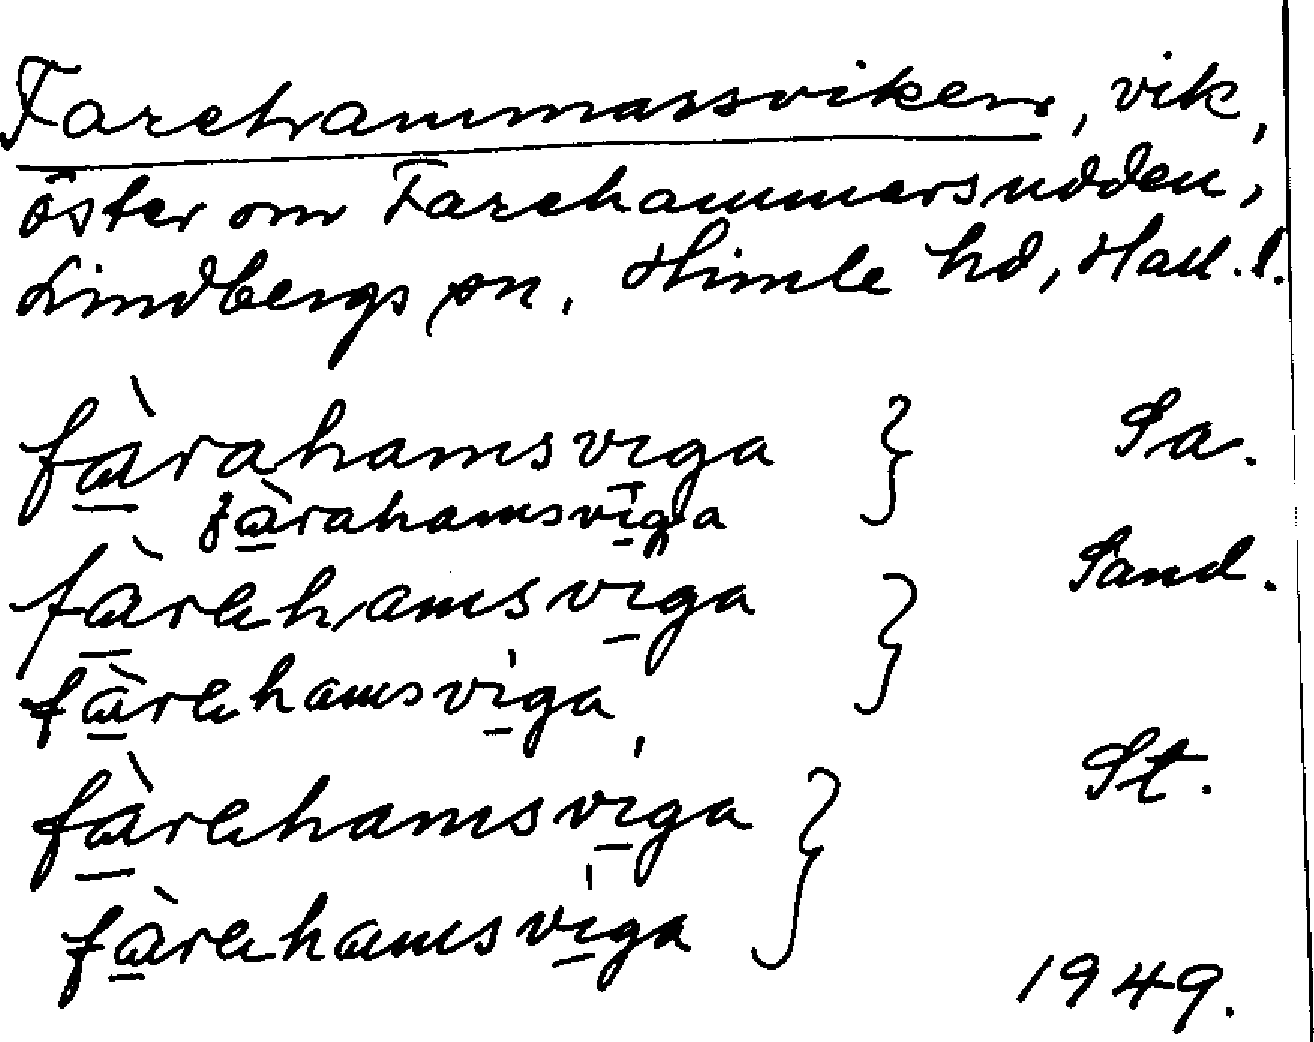 Farehammarsviken, vik,
öster om Farehammersudden,
Lindbergs sn, Himle hd, Hall. l.
fàrahamsviga } Sa.
fàrahamsviga
fàrehamsviga } Sand.
fàrehamsviga
fàrehamsviga } St.
fàrehamsviga
1949.